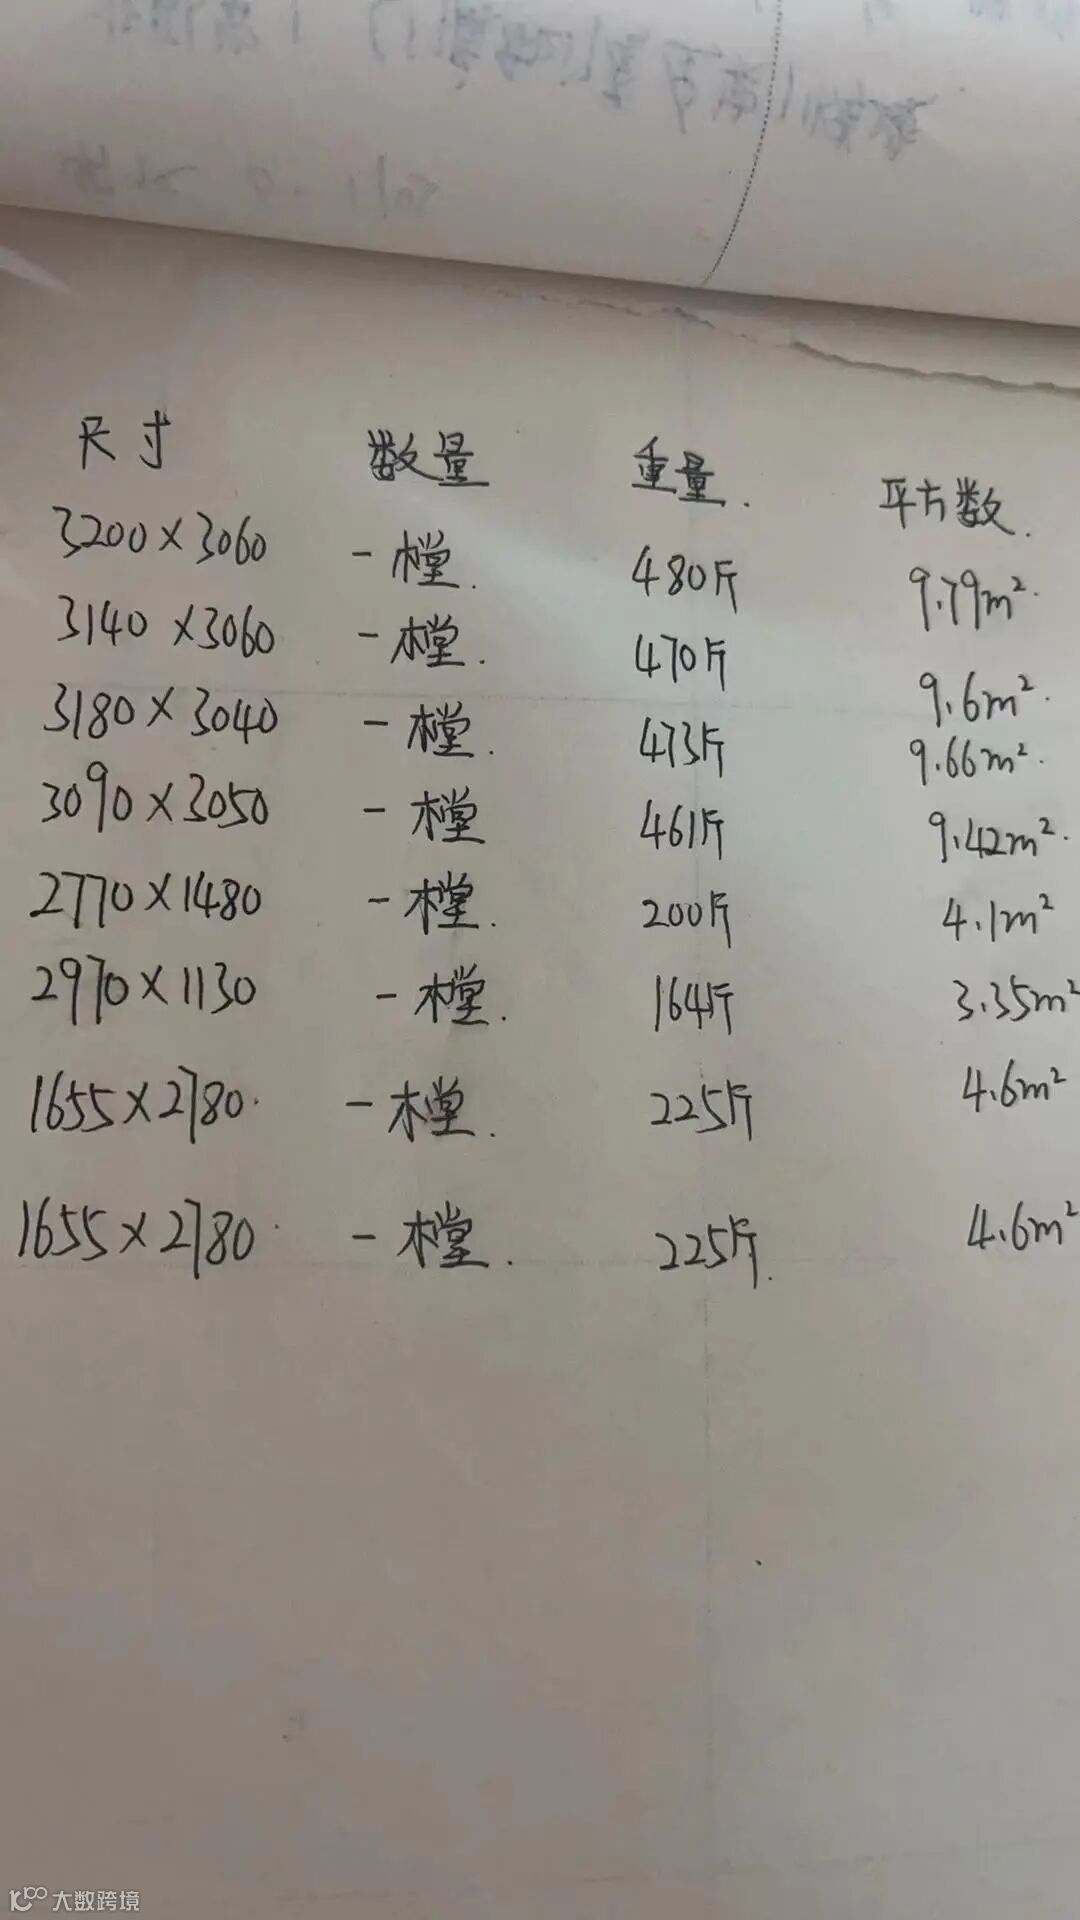 尺寸 数量 重量. 平方数.
3200×3060 一樘. 480斤 9.79m².
3140×3060 一樘. 470斤 9.6m².
3180×3040 一樘. 473斤 9.66m².
3090×3050 一樘 461斤 9.42m².
2770×1480 一樘. 200斤 4.1m²
2970×1130 一樘. 164斤 3.35m²
1655×2780. 一樘. 225斤 4.6m²
1655×2780. 一樘. 225斤. 4.6m²
大数跨境